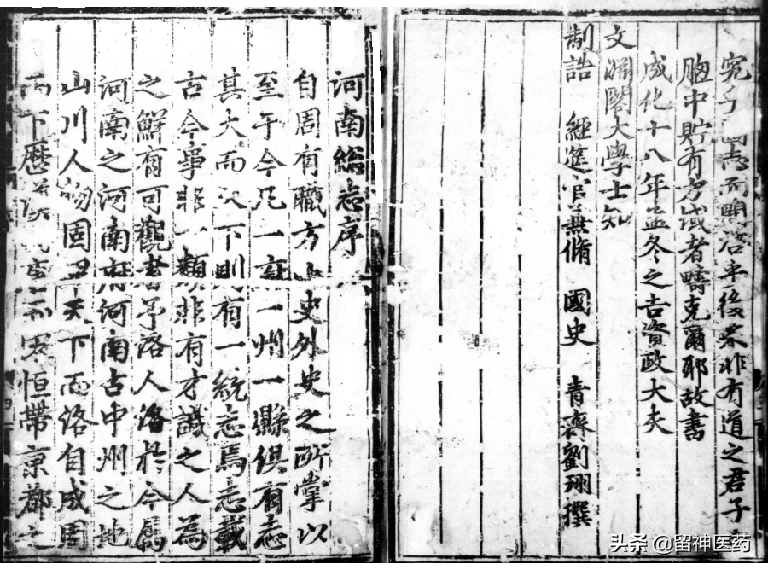 究于志而顯治平後業非有道之君子
胸中貯有方域者疇克爾耶故書
成化十八年孟冬之吉資政大夫
文淵閣大學士知
制誥 經筵官兼脩 國史 青齊劉珝撰
河南総志序
自周有職方小史外史之所掌以
至于今凡一府一州一縣俱有志
其大而天下則有一統志焉志載
古今事非一類非有才識之人為
之鮮有可觀者予洛人洛於今屬
河南之河南府河南古中州之地
山川人物固甲天下而洛自成周
而下歷宋恒帶京都之
头条 @留神医药